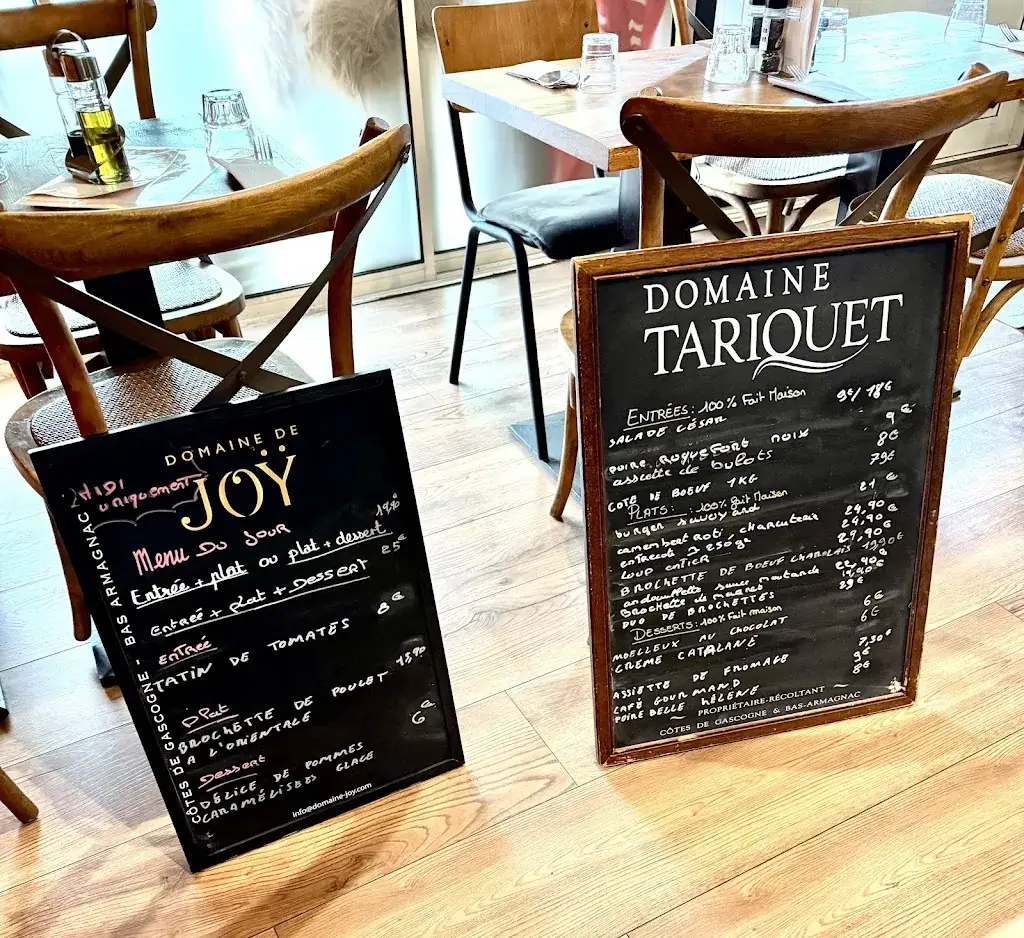 DOMAINE DE
JOŸ
MIDI
uniquement
Menu DU JOUR
Entrée + plat ou plat + dessert
Entrée + plat + DESSERT 25€
ENTRÉE
TATIN DE TOMATES 8€
Plat
BROCHETTE DE POULET 13,90
A L'ORIENTALE
Dessert 6€
DÉLICE DE POMMES
CARAMÉLISÉES GLACE
info@domaine-joy.com
CÔTES DE GASCOGNE - BAS ARMAGNAC
DOMAINE
TARIQUET
ENTRÉES: 100% Fait Maison
SALADE CÉSAR 9€/18€
POIRE ROQUEFORT NOIX 9€
assiette de bulots 8€
COTE DE BOEUF 1KG 79€
PLATS: 100% fait Maison
burger savoyard 21€
camembert Roti charcuterie 24,90
entrecot 250gr 24,90
LOUP ENTIER 27,90
BROCHETTE DE BOEUF CHAROLAIS 19,90€
andouillette sauce moutarde 22,90
Brochette de magret
DUO DE BROCHETTES 38€
DESSERTS: 100% Fait maison
MOELLEUX AU CHOCOLAT 6€
CREME CATALANE 6€
ASSIETTE DE FROMAGE 7,50€
CAFÉ GOURMAND 9€
POIRE BELLE HÉLÈNE 8€
PROPRIÉTAIRE-RÉCOLTANT
CÔTES DE GASCOGNE & BAS-ARMAGNAC